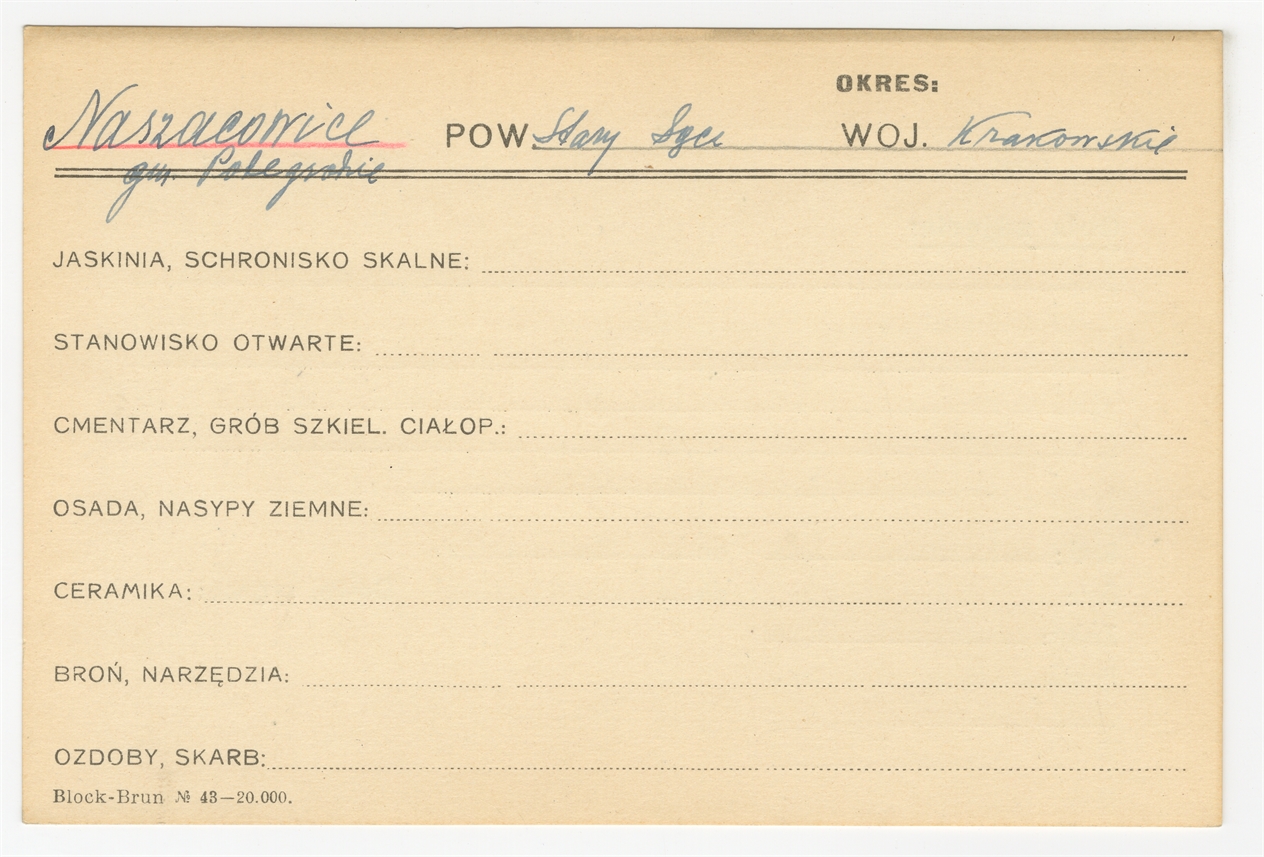 OKRES:
Naszacowice POW. Stary Sącz WOJ. Krakowskie
gm. Podegrodzie
JASKINIA, SCHRONISKO SKALNE:
STANOWISKO OTWARTE:
CMENTARZ, GRÓB SZKIEL. CIAŁOP.:
OSADA, NASYPY ZIEMNE:
CERAMIKA:
BROŃ, NARZĘDZIA:
OZDOBY, SKARB:
Block-Brun № 43—20.000.